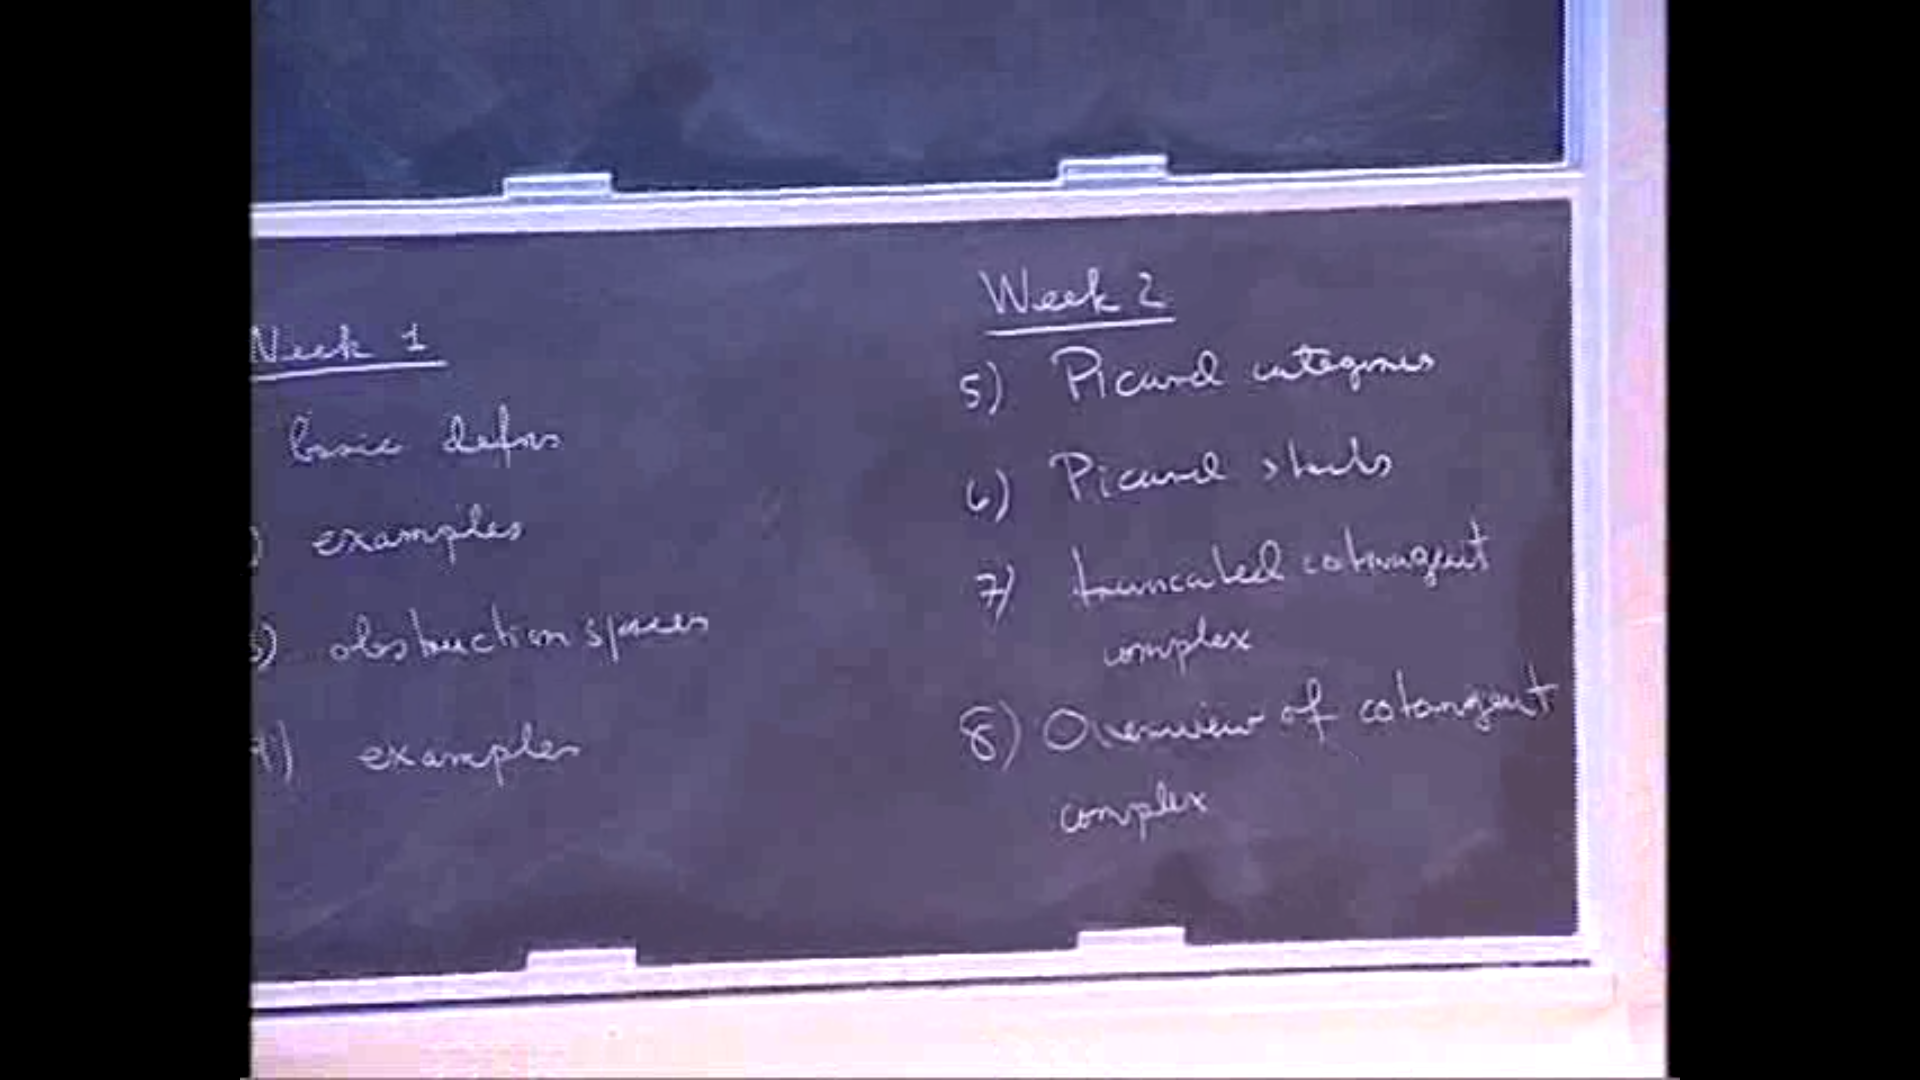 Week 1
basic defns
) examples
3) obstruction spaces
4) examples
Week 2
5) Picard categories
6) Picard stacks
7) truncated cotangent
complex
8) Overview of cotangent
complex